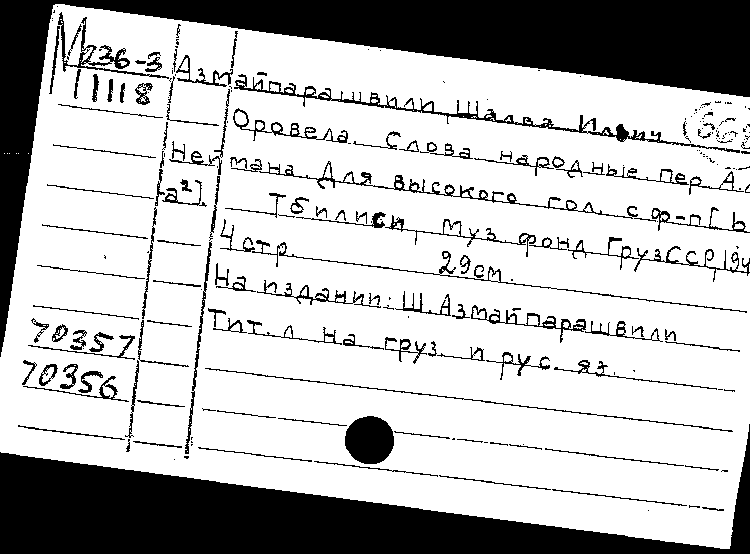 М 236-3
1118
Азмайпарашвили, Шалва Ильич
668
Оровела. Слова народные. пер. А.
Неймана. Для высокого гол. с ф-п [b
-a²].
Тбилиси, Муз. фонд ГрузССР, 194
4 стр. 29см.
На издании: Ш. Азмайпарашвили
Тит. л на груз. и рус. яз.
70357
70356